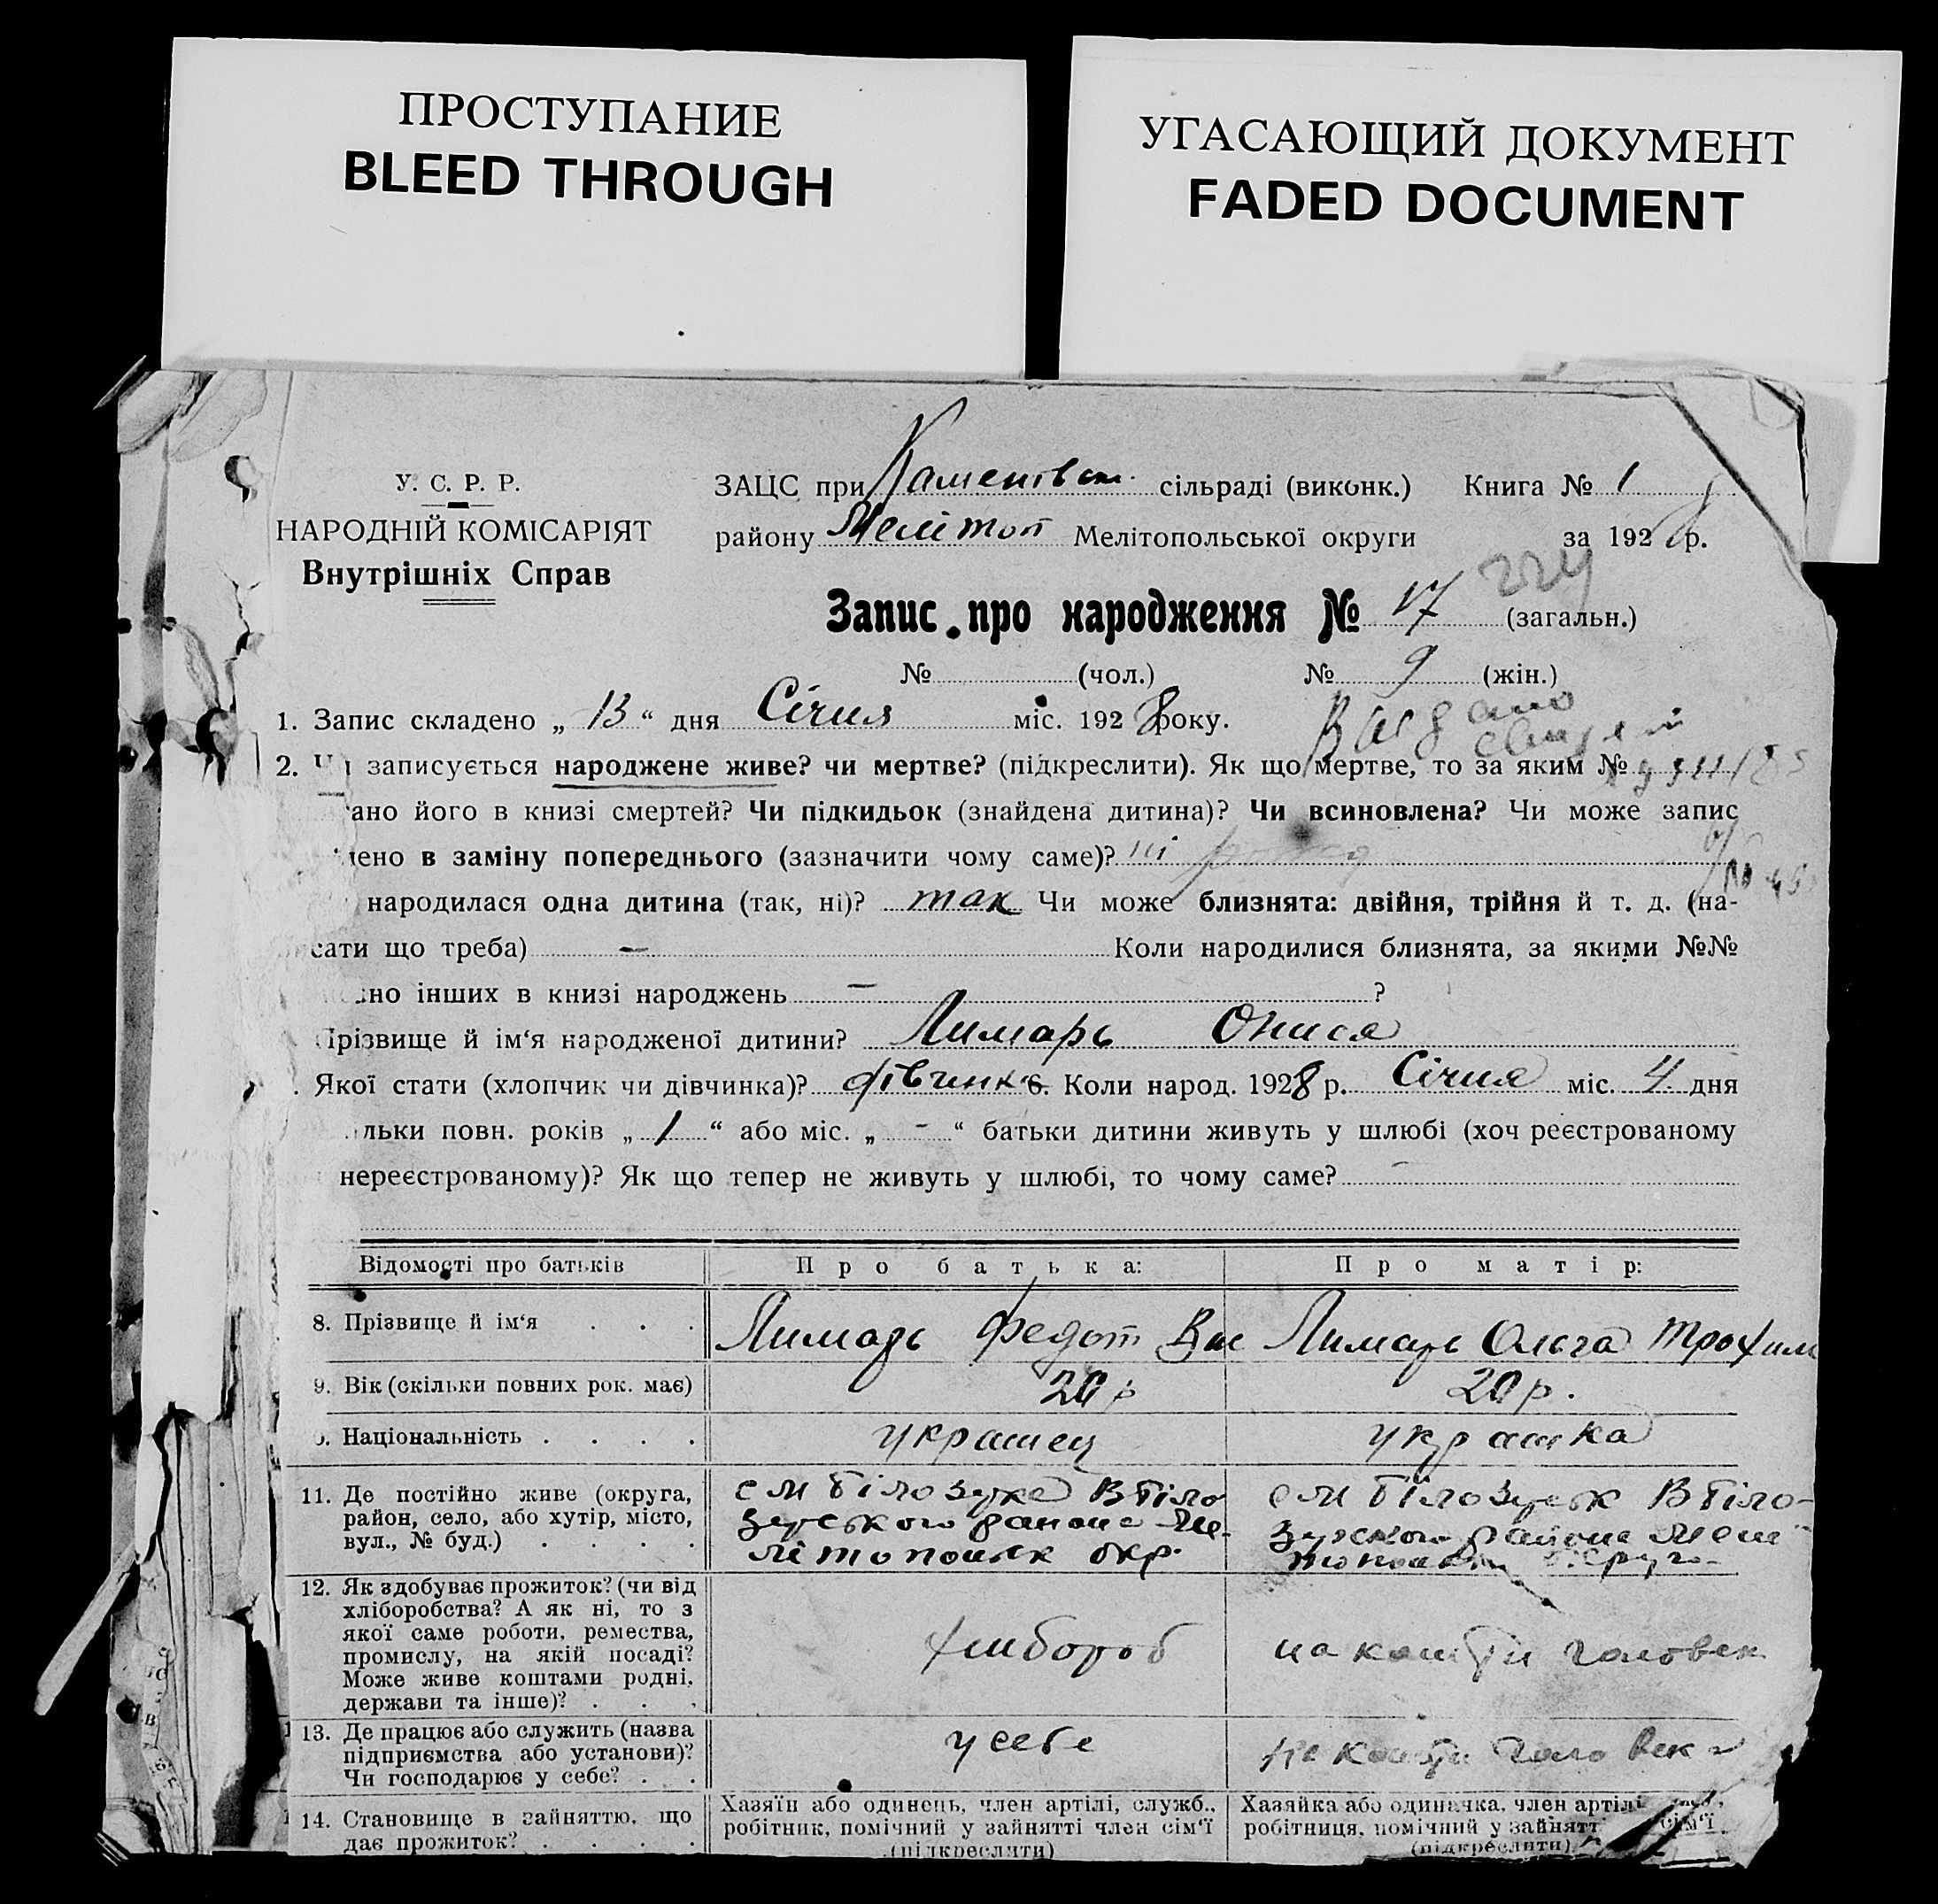 ПРОСТУПАНИЕ
BLEED THROUGH
УГАСАЮЩИЙ ДОКУМЕНТ
FADED DOCUMENT
У. С. Р. Р.
НАРОДНІЙ КОМІСАРІЯТ
Внутрішніх Справ
ЗАЦС при сільраді (виконк.) Книга № 1
району Мелітоп Мелітопольської округи за 1928 р.
224
Запис про народження № 17 (загальн.)
№ (чол.) № 9 (жін.)
1. Запис складено „ 13 “ дня Січня міс. 1928 року.
2. записується народжене живе? чи мертве? (підкреслити). Як що мертве, то за яким №
ано його в книзі смертей? Чи підкидьок (знайдена дитина)? Чи всиновлена? Чи може запис
ено в заміну попереднього (зазначити чому саме)? ні
народилася одна дитина (так, ні)? так Чи може близнята: двійня, трійня й т. д. (на-
сати що треба) — Коли народилися близнята, за якими №№
но інших в книзі народжень — ?
Прізвище й ім'я народженої дитини? Лимарь Онися
. Якої стати (хлопчик чи дівчинка)? дівчинка 6. Коли народ. 1928 р. Січня міс. 4 дня
льки повн. років „ 1 “ або міс. „ - “ батьки дитини живуть у шлюбі (хоч реєстрованому
нереєстрованому)? Як що тепер не живуть у шлюбі, то чому саме? —
Відомості про батьків Про батька: Про матір:
8. Прізвище й ім'я . . . Лимарь Федот Вас Лимарь Ольга Трохим
9. Вік (скільки повних рок. має) 20 р 20 р.
0. Національність . . . . украинец украинка
11. Де постійно живе (округа,
район, село, або хутір, місто,
вул., № буд.) . . . .
12. Як здобуває прожиток? (чи від
хліборобства? А як ні, то з
якої саме роботи, ремества,
промислу, на якій посаді?
Може живе коштами родні,
держави та інше)? . . .
хлибороб
13. Де працює або служить (назва
підприємства або установи)?
Чи господарює у себе? . .
у себе
14. Становище в зайняттю, що
дає прожиток? . . . .
Хазяїн або одинець, член артілі, служб.,
робітник, помічний у зайнятті член сім'ї
(підкреслити)
Хазяйка або одиначка, член артілі
робітниця, помічний у зайнятт сім'ї
(підкреслити)